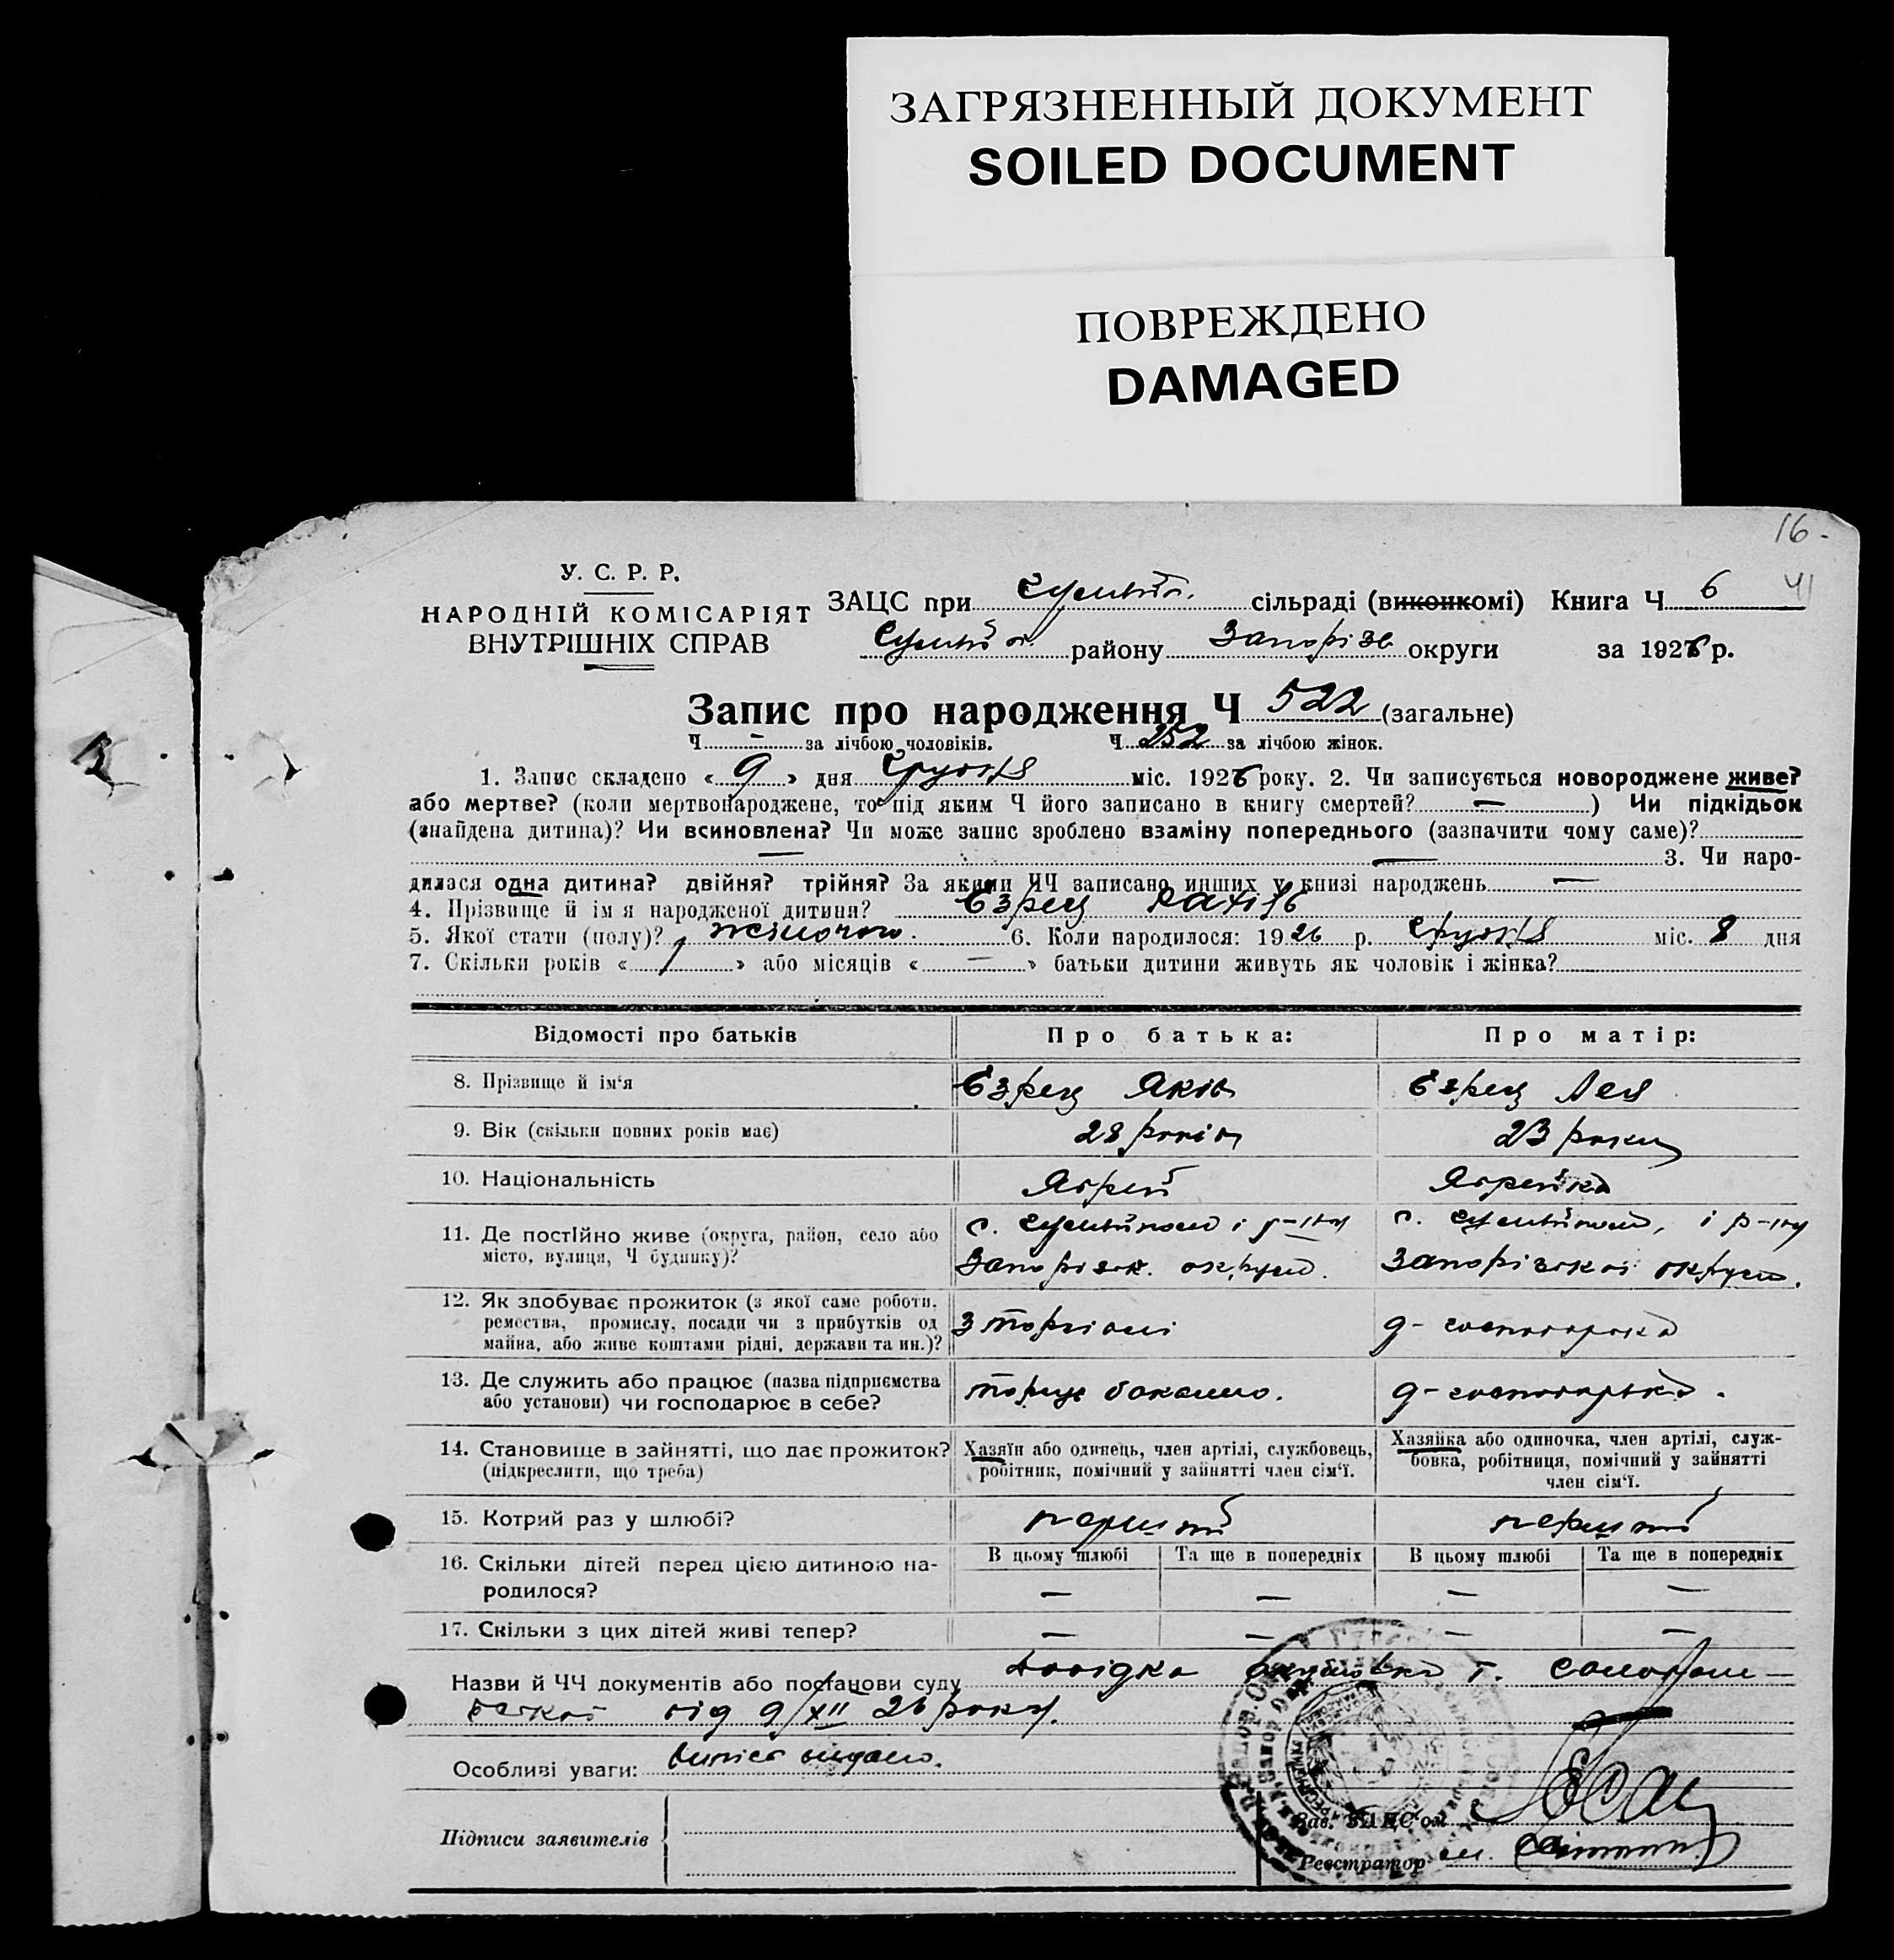 ЗАГРЯЗНЕННЫЙ ДОКУМЕНТ
SOILED DOCUMENT
ПОВРЕЖДЕНО
DAMAGED
16.
У. С. Р. Р.
НАРОДНІЙ КОМІСАРІЯТ
ВНУТРІШНІХ СПРАВ
ЗАЦС при сільраді (виконкомі) Книга Ч 6 41
району Запорізь округи за 1926 р.
Запис про народження Ч 522 (загальне)
Ч — за лічбою чоловіків. Ч 252 за лічбою жінок.
1. Запис складено « 9 » дня Грудня міс. 1926 року. 2. Чи записується новороджене живе?
або мертве? (коли мертвонароджене, то під яким Ч його записано в книгу смертей? — ) Чи підкідьок
(знайдена дитина)? Чи всиновлена? Чи може запис зроблено взаміну попереднього (зазначити чому саме)?
— — 3. Чи наро-
дилася одна дитина? двійня? трійня? За якими ЧЧ записано инших у книзі народжень —
4. Прізвище й ім я народженої дитини? Езрец
5. Якої стати (полу)? жіночого. 6. Коли народилося: 1926 р. Грудня міс. 8 дня
7. Скільки років « 1 » або місяців « — » батьки дитини живуть як чоловік і жінка?
Відомості про батьків Про батька: Про матір:
8. Прізвище й ім'я Езрец Яків Езрец Лея
9. Вік (скільки повних років має) 28 років 23 роки
10. Національність Яврей Яврейка
11. Де постійно живе (округа, район, село або с. і р-ну с. і р-ну
місто, вулиця, Ч будинку)? Запорізьк. округи. Запорізької округи.
12. Як здобуває прожиток (з якої саме роботи,
ремества, промислу, посади чи з прибутків од з торгівлі д-господарка
майна, або живе коштами рідні, держави та ин.)?
13. Де служить або працює (назва підприємства торгує бакалею. д-господарька.
або установи) чи господарює в себе?
14. Становище в зайнятті, що дає прожиток? Хазяїн або одинець, член артілі, службовець, Хазяйка або одиночка, член артілі, служ-
(підкреслити, що треба) робітник, помічний у зайнятті член сім'ї. бовка, робітниця, помічний у зайнятті
член сім'ї.
15. Котрий раз у шлюбі? перший перший
16. Скільки дітей перед цією дитиною на- В цьому шлюбі Та ще в попередніх В цьому шлюбі Та ще в попередніх
родилося? — — — —
17. Скільки з цих дітей живі тепер? — — — —
Назви й ЧЧ документів або постанови суду Довідка акушорки т.
від 9/XII 26 року.
Особливі уваги: Випис видано.
Підписи заявителів
Зав. ЗАЦС'ом
Реєстратор